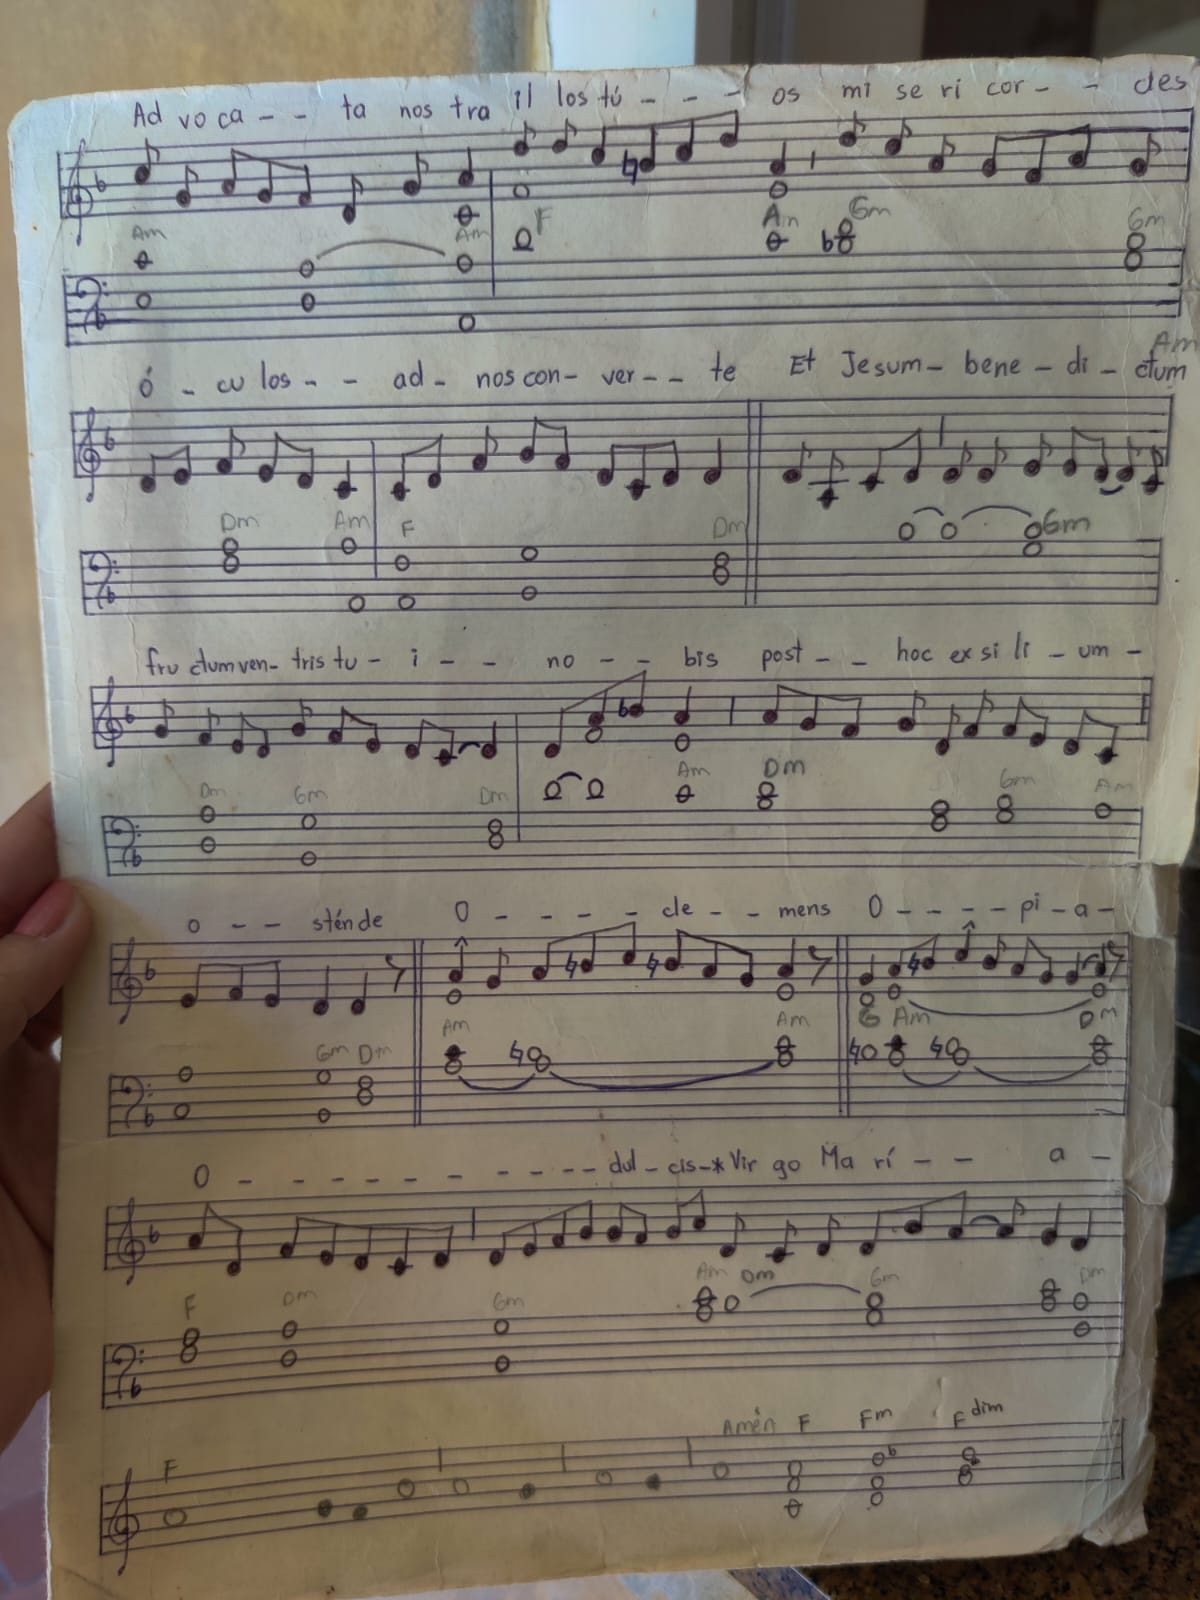 Ad vo ca - - ta nos tra il los tú - - - os mi se ri cor - - des
Am Am F Am Gm Gm
Ó - cu los - - ad - nos con - ver - - te Et Jesum - bene - di - ctum
Am
Dm Am F Dm Gm
fru ctum ven - tris tu - i - - no - - bis post - - hoc ex si li - um -
Dm Gm Dm Am Dm Gm Am
o - - sténde O - - - - cle - - mens O - - - - pi - a -
Gm Dm Am Am G Am Dm
O - - - - - - - - - - dul - cis - * Vir go Ma rí - - a -
F Dm Gm Am Dm Gm Dm
F Amén F Fm F dim